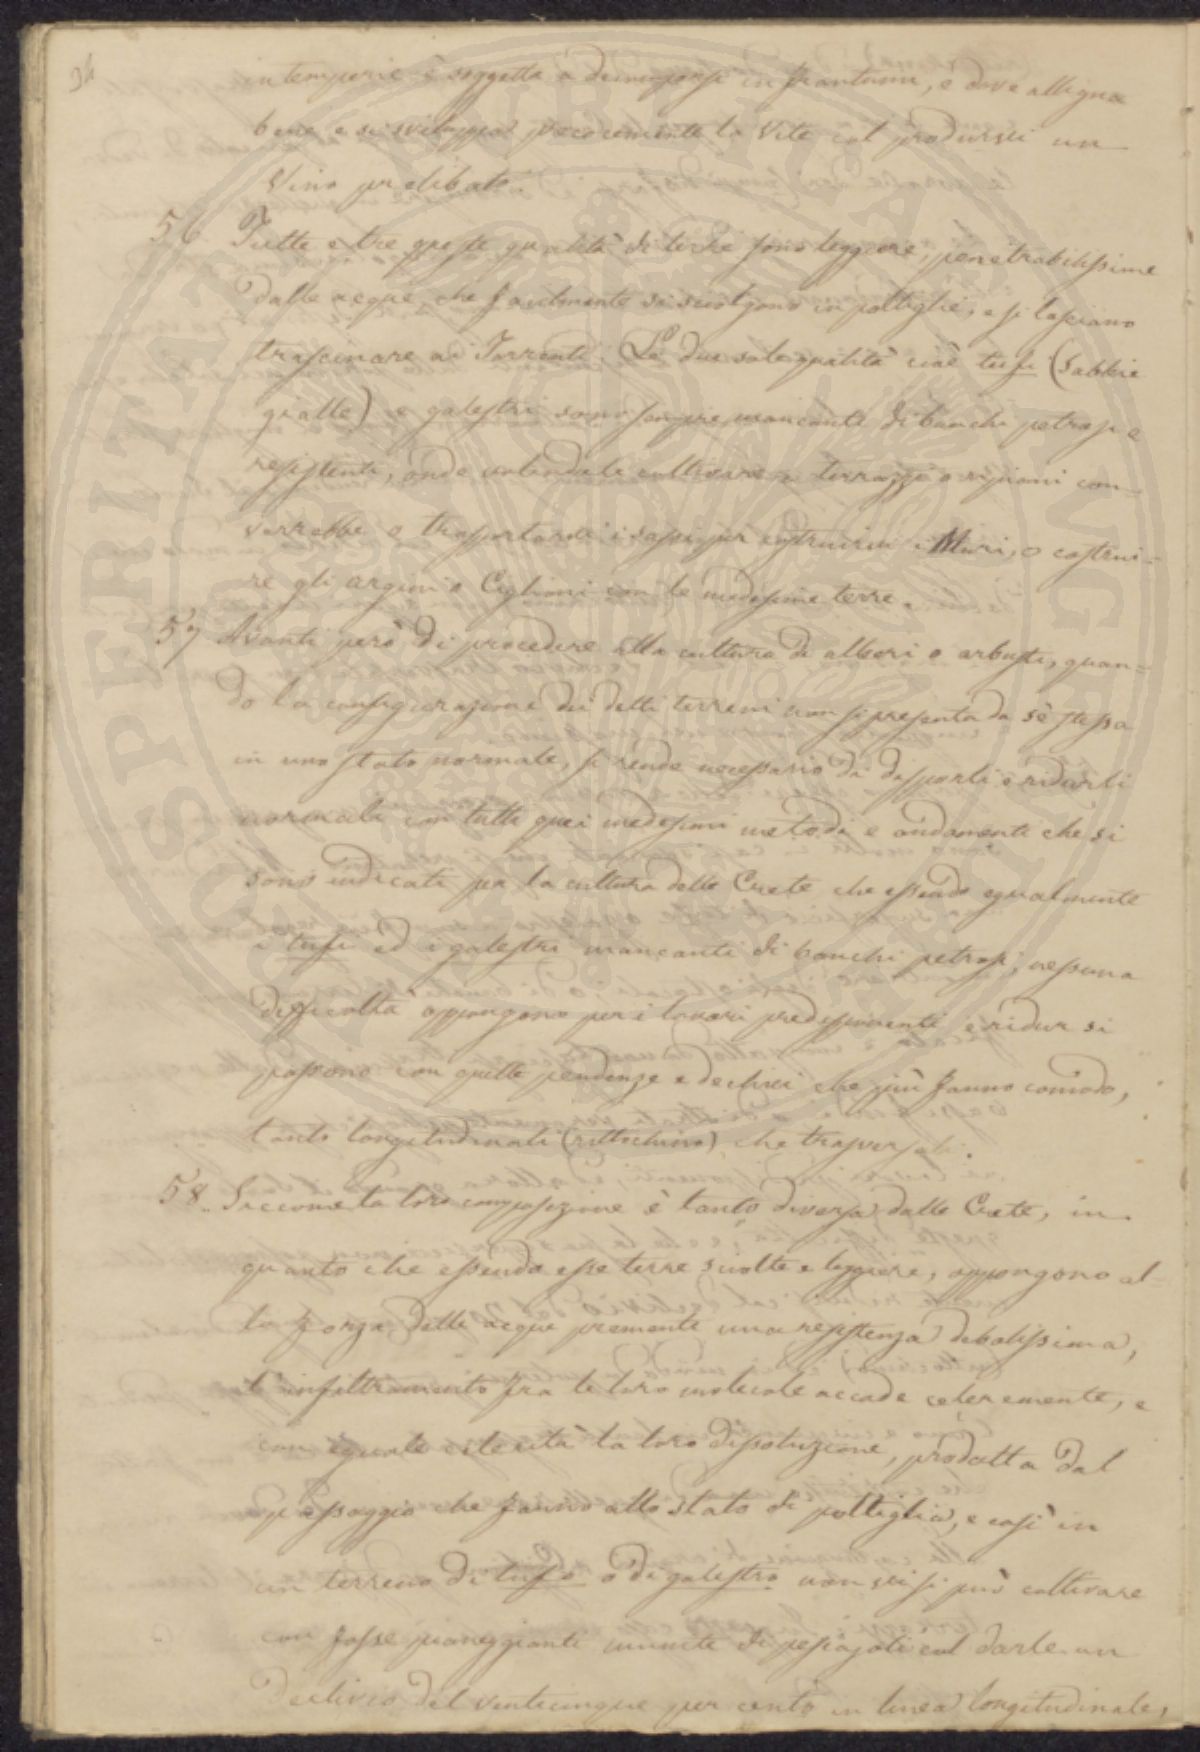 94
intemperie è soggetta a decomporsi in frantumi, e dove alligna
bene e si sviluppa precocemente la Vite col prodursi un
Vino prelibato.
56. Tutte e tre queste qualità di terre sono leggiere, penetrabilissime
dalle acque, che facilmente si sciolgono in poltiglie, e si lasciano
trascinare ai Torrenti. Le due sole qualità cioè tufi (sabbie
gialle) e galestri sono sempre mancanti di banchi petrosi e
resistenti, onde volendole coltivare a terrazzi o ripiani con-
verrebbe o trasportarvi i sassi per costruirvi i Muri, o costrui-
re gli argini o Ciglioni con le medesime terre.
57 Avanti però di procedere alla cultura di alberi o arbusti, quan-
do la configurazione dei detti terreni non si presenta da sè stessa
in uno stato normale, si rende necessario di disporli e ridurli
normali con tutti quei medesimi metodi e andamenti che si
sono indicati per la cultura delle Crete che essendo egualmente
i tufi ed i galestri mancanti di banchi petrosi, nessuna
difficoltà oppongono per i lavori predisponenti e ridur si
possono con quelle pendenze e declivi che più fanno comodo,
tanto longitudinali (rittochino) che trasversali.
58. Siccome la loro composizione è tanto diversa dalle Crete, in
quanto che essendo esse terre sciolte e leggiere, oppongono al-
la forza delle acque prementi una resistenza debolissima,
l'infiltramento fra le loro molecole accade celeremente, e
con eguale celerità la loro dissoluzione, prodotta dal
passaggio che fanno allo stato di poltiglia, e così in
un terreno di tufo o di galestro non vi si può coltivare
con fosse pianeggianti munite di pesciajoli col darle un
Declivio del venticinque per cento in linea longitudinale,
PROSPERITATI PUBLICAE AUGENDAE